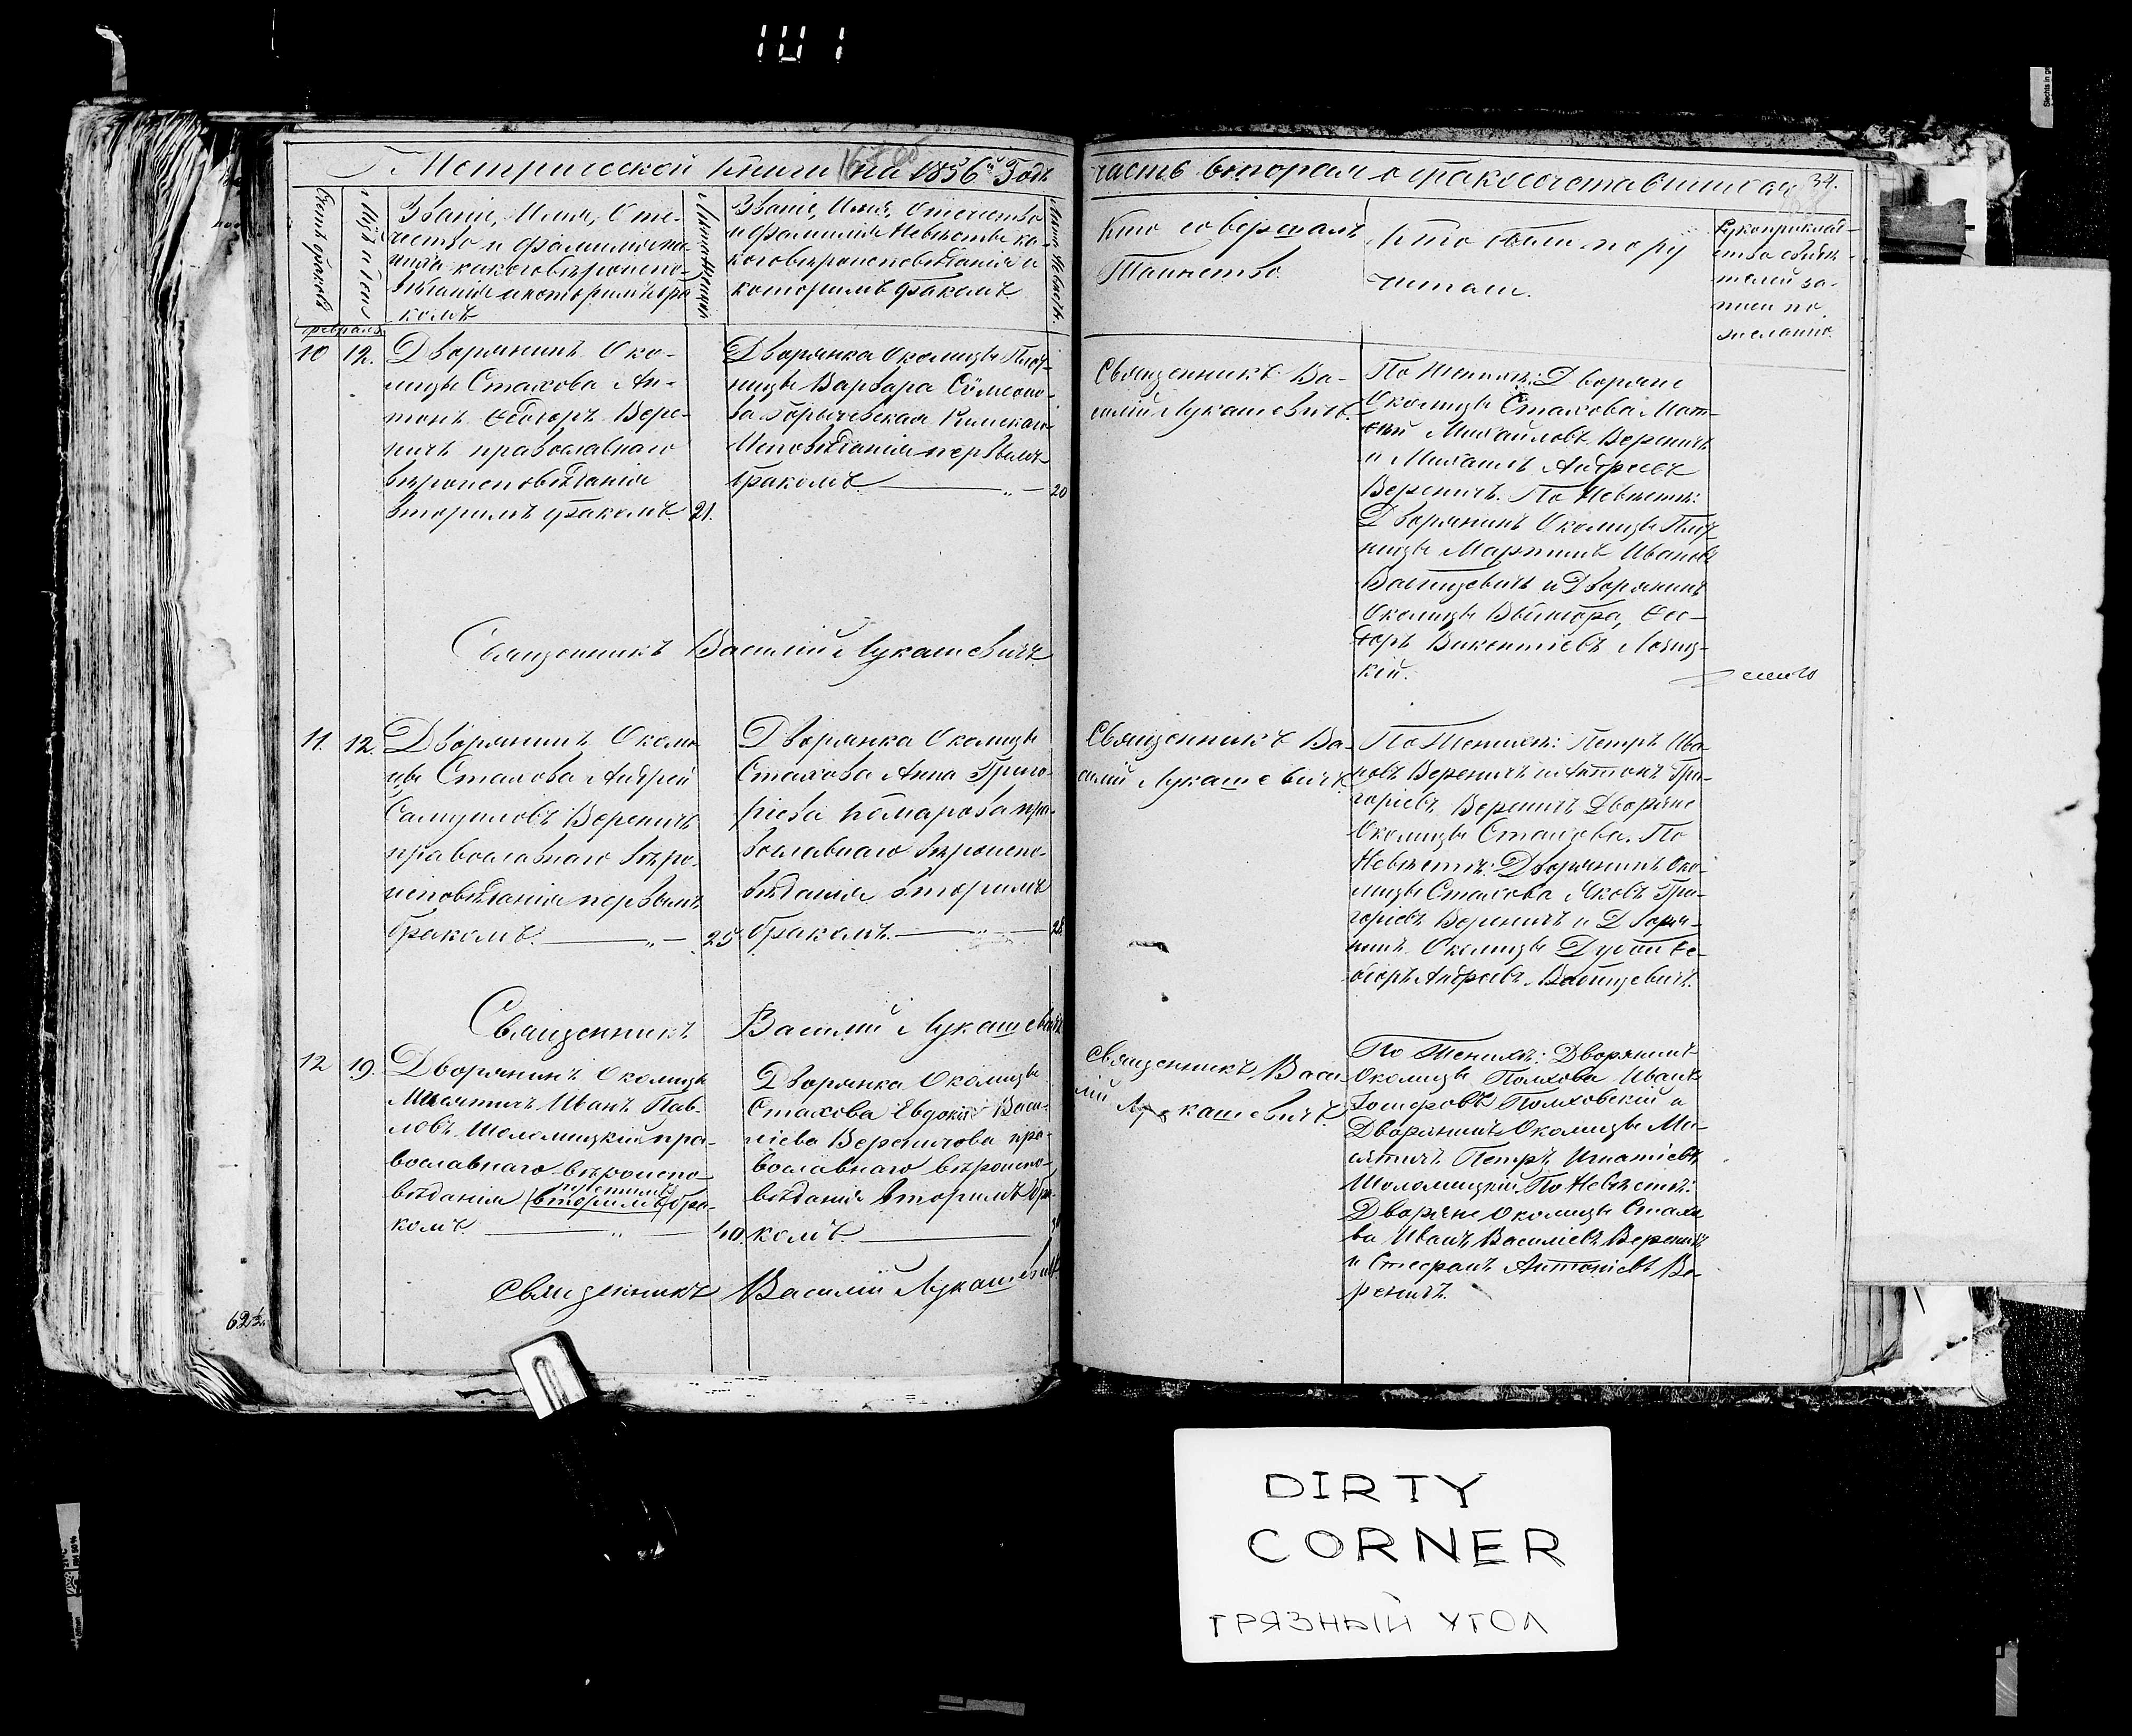 101
Метрической книги на 1856й Годъ
часть вторая о бракосочетавшихся
34.
Счетъ браковъ
Мѣсяцъ и день
Званіе, Имя, Оте-
чество и фамилія же-
ниха какого вѣроиспо-
вѣданія и которымъ бра-
комъ
Лѣта Жениха
Званіе, Имя, Отечество
и фамилія Невѣсты ка-
кого вѣроисповѣданія и
которымъ бракомъ
Лѣта Невѣсты.
Кто совершалъ
Таинство
Кто были пору
чители.
Рукоприклад-
ство свидѣ-
телей за-
писи по
желанію.
февраля
10
12.
Дворянинъ Око-
лицы Стахова Ан-
тонъ Ѳедоровъ Вере-
ничъ православнаго
вѣроисповѣданія
вторымъ бракомъ.
21.
Дворянка Околицы Плот-
ницы Варвара Сѵмеоно-
ва Римскаго
Исповѣданія первымъ
бракомъ.
20
Священникъ Ва-
силій Лукашевичъ.
По Женихѣ: Дворяне
Околицы Стахова Мат-
ѳей Михайловъ Вереничъ
и Михаилъ Андреевъ
Вереничъ. По Невѣстѣ:
Дворянинъ Околицы Плот-
ницы Мартинъ Ивановъ
Войтцевичъ и Дворянинъ
Околицы Ѳео-
доръ Викентіевъ Лозиц-
кій.
Священникъ Василій Лукашевичъ
11.
12.
Дворянинъ Околи-
цы Стахова Андрей
Самуиловъ Вереничъ
православнаго вѣро-
исповѣданія первымъ
бракомъ.
25
Дворянка Околицы
Стахова Анна Григо-
ріева Комарова пра-
вославнаго вѣроиспо-
вѣданія вторымъ
бракомъ.
28.
Священникъ Ва-
силій Лукашевичъ.
По Женихѣ: Петръ Ива-
новъ Вереничъ и Антонъ Гри-
горіевъ Вереничъ Дворяне
Околицы Стахова. По
Невѣстѣ: Дворянинъ Око-
лицы Стахова Яковъ Гри-
горіевъ Вереничъ и Дворя-
нинъ Околицы Дубой Ѳе-
одоръ Андреевъ Войтцевичъ.
Священникъ Василій Лукашевичъ
12
19.
Дворянинъ Околицы
Мѣсятичъ Иванъ Пав-
ловъ Шоломицкій пра-
вославнаго вѣроиспо-
третьимъ
вѣданія (вторымъ) бра-
комъ
40.
Дворянка Околицы
Стахова Евдокія Васи-
ліева Вереничова пра-
вославнаго вѣроиспо-
вѣданія вторымъ бра-
комъ.
Священникъ Васи-
лій Лукашевичъ.
По Женихѣ: Дворянинъ
Околицы Полхова Иванъ
Полховскій и
Дворянинъ Околицы Мѣ-
сятичъ Петръ Игнатіевъ
Шоломицкій. По Невѣстѣ:
Дворяне Околицы Стахо
ва Иванъ Василіевъ Вереничъ
и Стефанъ Антоніевъ Ве-
реничъ.
Священникъ Василій Лукашевичъ
DIRTY
CORNER
ГРЯЗНЫЙ УГОЛ